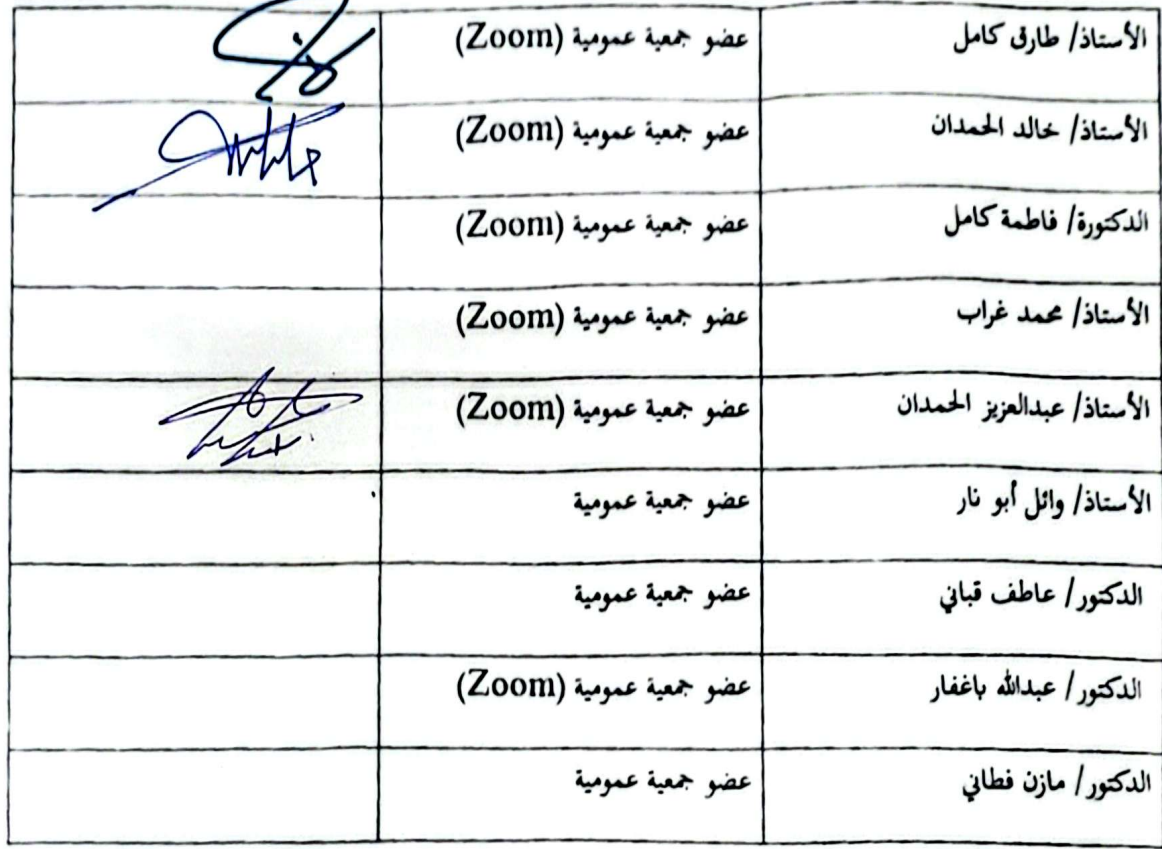 الأستاذ/ طارق كامل عضو جمعية عمومية (Zoom)
الأستاذ/ خالد الحمدان عضو جمعية عمومية (Zoom)
الدكتورة/ فاطمة كامل عضو جمعية عمومية (Zoom)
الأستاذ/ محمد غراب عضو جمعية عمومية (Zoom)
الأستاذ/ عبدالعزيز الحمدان عضو جمعية عمومية (Zoom)
الأستاذ/ وائل أبو نار عضو جمعية عمومية
الدكتور/ عاطف قباني عضو جمعية عمومية
الدكتور/ عبدالله باغفار عضو جمعية عمومية (Zoom)
الدكتور/ مازن فطاني عضو جمعية عمومية